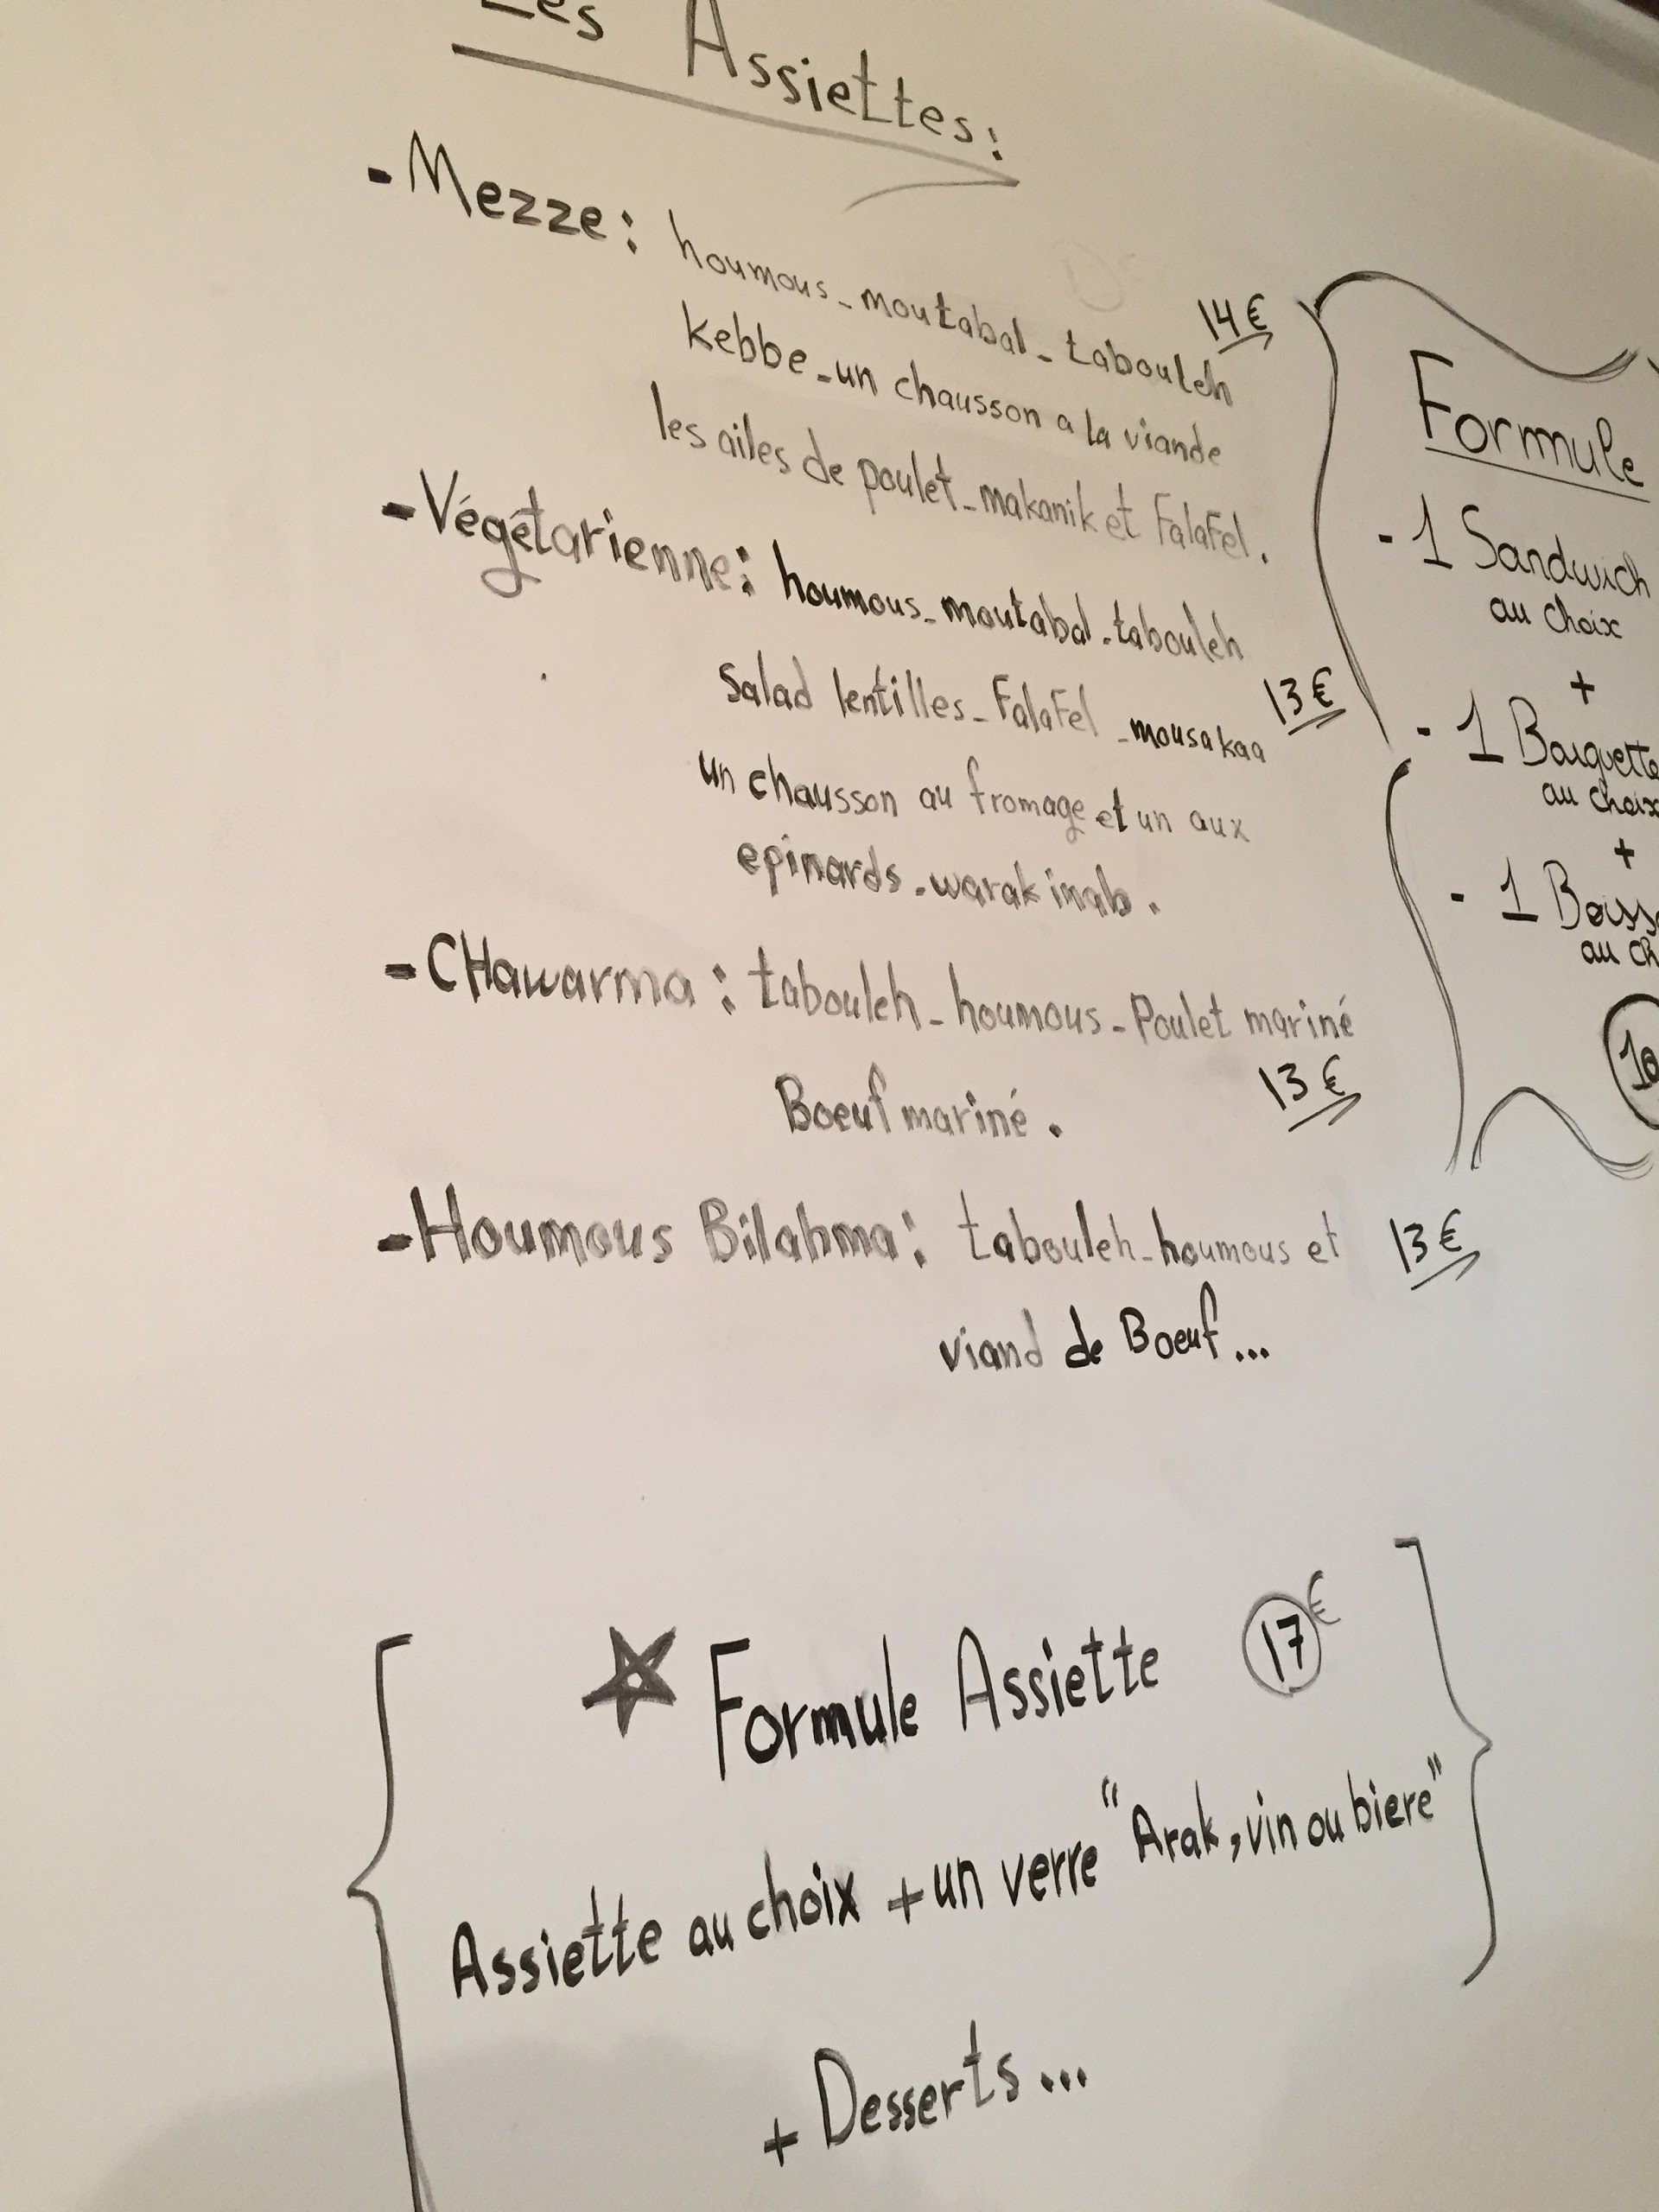 Les Assiettes:
- Mezze: houmous - moutabal - tabouleh
14€
kebbe - un chausson a la viande
les ailes de poulet - makanik et FalaFel.
- Végétarienne: houmous - moutabal - tabouleh
salad lentilles - FalaFel - mousakaa
13€
un chausson au fromage et un aux
epinards - warak inab.
- CHawarma: tabouleh - houmous - Poulet mariné
Boeuf mariné.
13€
- Houmous Bilahma: tabouleh - houmous et
13€
viand de Boeuf...
Formule
- 1 Sandwich
au choix
+
- 1
au choix
+
- 1
au
Formule Assiette 17€
Assiette au choix + un verre "Arak, vin ou biere"
+ Desserts...